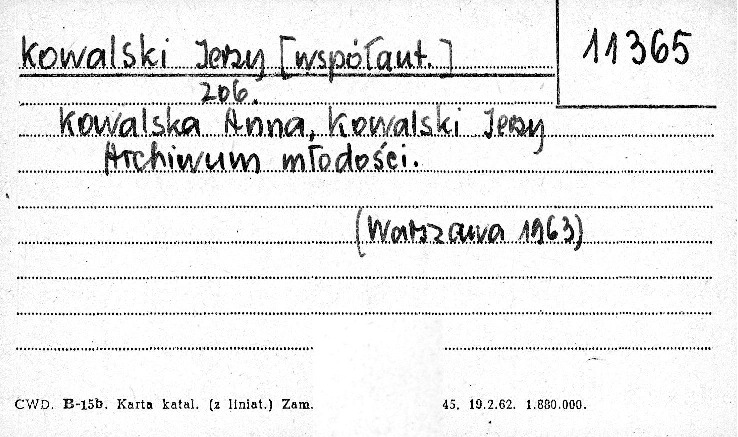 Kowalski Jerzy [współaut.]
11365
206.
Kowalska Anna, Kowalski Jerzy
Archiwum młodości.
(Warszawa 1963)
CWD. B-15b. Karta katal. (z liniat.) Zam. 45. 19.2.62. 1.880.000.